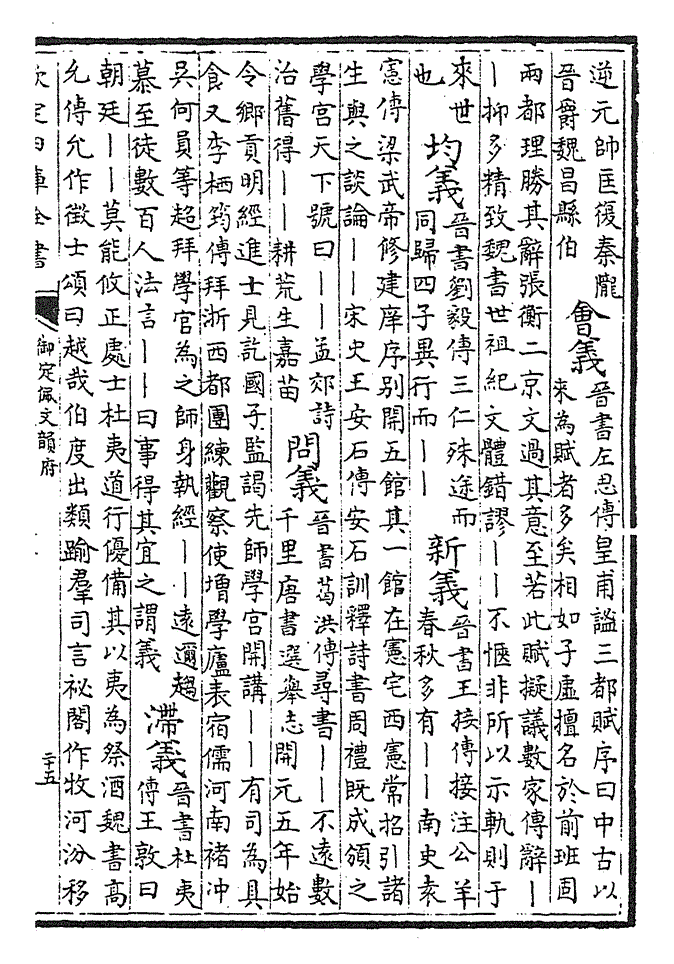 逆元帥匡復秦隴
晉爵魏昌縣伯
會義
晉書左思傳皇甫謐三都賦序曰中古以
來為賦者多矣相如子虛擅名於前班固
兩都理勝其辭張衡二京文過其意至若此賦擬議數家傳辭丨
丨抑多精致魏書世祖紀文體錯謬丨丨不愜非所以示軌則于
來世
也
均義
晉書劉毅傳三仁殊途而
同歸四子異行而丨丨
新義
晉書王接傳接注公羊
春秋多有丨丨南史袁
憲傳梁武帝修建庠序别開五館其一館在憲宅西憲常招引諸
生與之談論丨丨宋史王安石傳安石訓釋詩書周禮既成頒之
學宮天下號曰丨丨孟郊詩
治舊得丨丨耕荒生嘉苗
問義
晉書葛洪傳尋書丨丨不遠數
千里唐書選舉志開元五年始
令鄉貢明經進士見訖國子監謁先師學宮開講丨丨有司為具
食又李栖筠傳拜浙西都團練觀察使增學廬表宿儒河南褚冲
吳何員等超拜學官為之師身執經丨丨遠邇趨
慕至徒數百人法言丨丨曰事得其宜之謂義
滯義
晉書杜夷
傳王敦曰
朝廷丨丨莫能攸正處士杜夷道行優備其以夷為祭酒魏書高
允傳允作徵士頌曰越哉伯度出類踰羣司言祕閣作牧河汾移
欽定四庫全書
御定佩文韻府
二十五